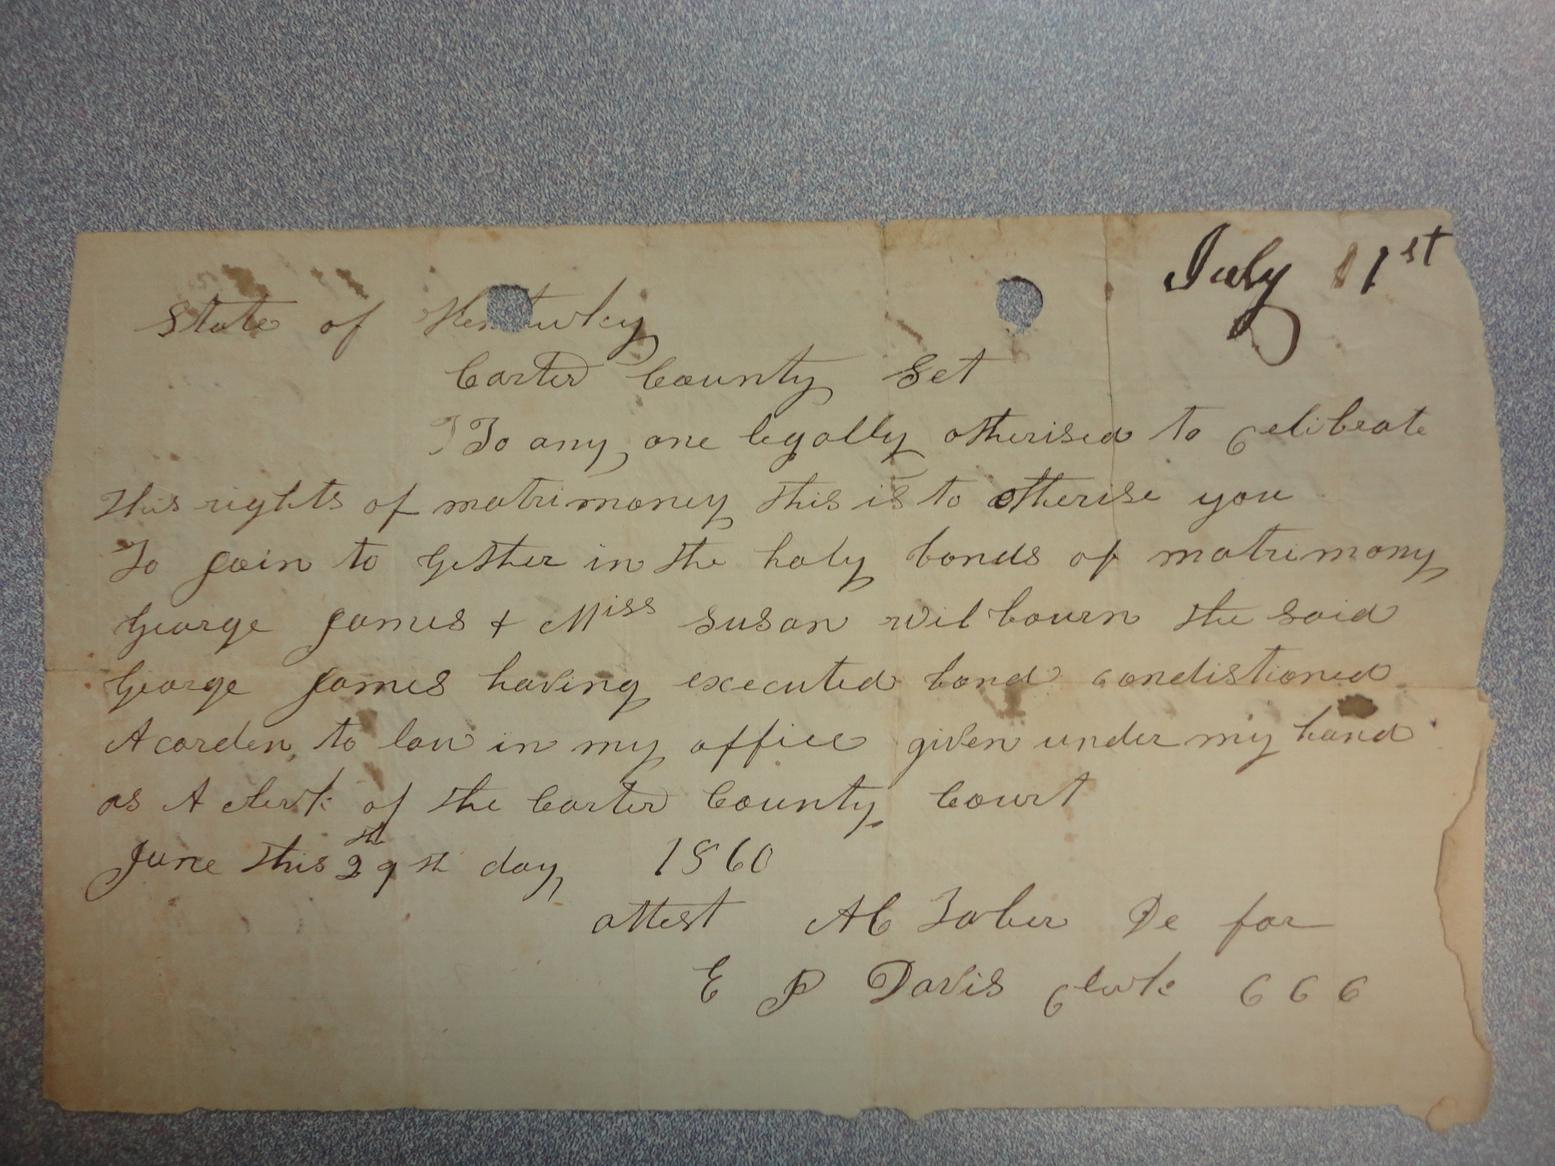 July 11st
State of Kentucky
Carter County Sct
To any one legally otherised to Celibeate
this rights of matrimoney this is to otherise you
To Join to gether in the holy bonds of matrimony
George James & Miss Susan Wilbourn the said
George James having executed bond condistioned
Acorden to law in my office given under my hand
as A clerk of the Carter County Court
June this 29st th day 1860
attest AC Taber De for
E P Davis Clerk CCC